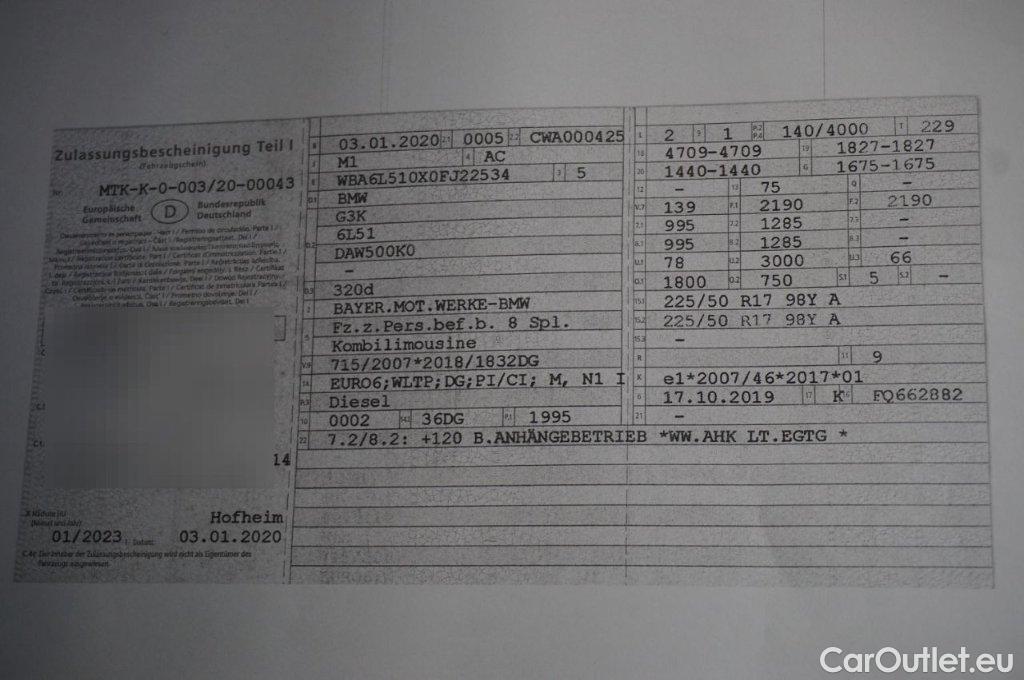 Zulassungsbescheinigung Teil I
(Fahrzeugschein)
Nr. MTK-K-0-003/20-00043
Europäische Gemeinschaft D Bundesrepublik Deutschland
14
Hofheim
01/2023 Datum: 03.01.2020
C.4c Der Inhaber der Zulassungsbescheinigung wird nicht als Eigentümer des
Fahrzeugs ausgewiesen.
B 03.01.2020 2.1 0005 2.2 CWA000425
J M1 4 AC
E WBA6L510X0FJ22534 3 5
D.1 BMW
G3K
D.2 6L51
DAW500K0
–
D.3 320d
2 BAYER.MOT.WERKE-BMW
5 Fz.z.Pers.bef.b. 8 Spl.
Kombilimousine
V.9 715/2007*2018/1832DG
14 EURO6;WLTP;DG;PI/CI; M, N1 I
P.3 Diesel
10 0002 14.1 36DG P.1 1995
22 7.2/8.2: +120 B.ANHÄNGEBETRIEB *WW.AHK LT.EGTG *
L 2 9 1 P.2 P.4 140/4000 T 229
18 4709-4709 19 1827-1827
20 1440-1440 G 1675-1675
12 – 13 75 Q –
V.7 139 F.1 2190 F.2 2190
7.1 995 7.2 1285 7.3 –
8.1 995 8.2 1285 8.3 –
U.1 78 U.2 3000 U.3 66
O.1 1800 O.2 750 S.1 5 S.2 –
15.1 225/50 R17 98Y A
15.2 225/50 R17 98Y A
15.3 –
R 11 9
K e1*2007/46*2017*01
6 17.10.2019 17 K 16 FQ662882
21 –
CarOutlet.eu